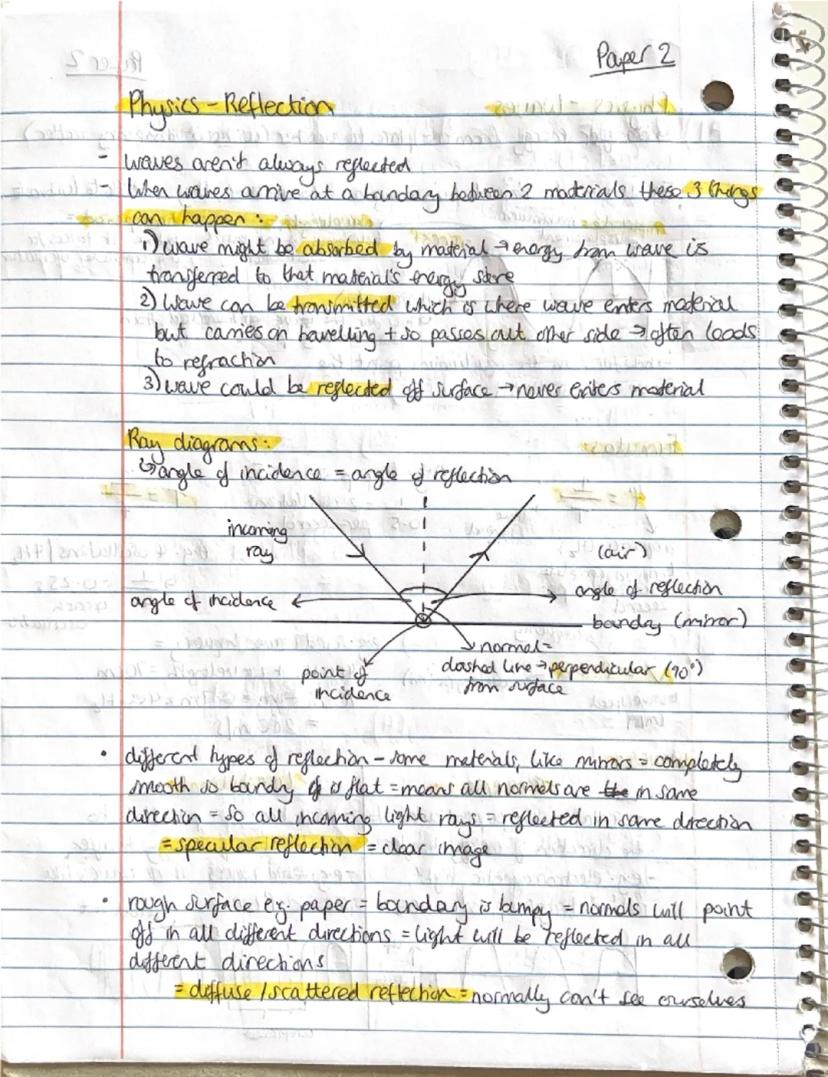 Paper 2
Physics - Reflection
- waves aren't always reflected
- When waves arrive at a bandary between 2 materials these 3 things
can happen:
1) wave might be absorbed by material → energy from wave is
transferred to that material's energy store
2) wave can be transmitted which is where wave enters material
but carries on travelling + so passes out other side → often leads
to refraction
3) wave could be reflected off surface → never enters material
Ray diagrams:
↳ angle of incidence = angle of reflection
incoming
ray
(air)
angle of incidence
angle of reflection
bandry (mirror)
point of
incidence
normal-
dashed line → perpendicular (90°)
from surface
• different types of reflection - some materials, like mirrors = completely
smooth so boundry is flat = means all normals are in same
direction = so all incoming light rays = reflected in same direction
= specular reflection = clear image
• rough surface e.g. paper = boundary is bumpy = normals will point
off in all different directions = light will be reflected in all
different directions
= diffuse / scattered reflection = normally can't see ourselves